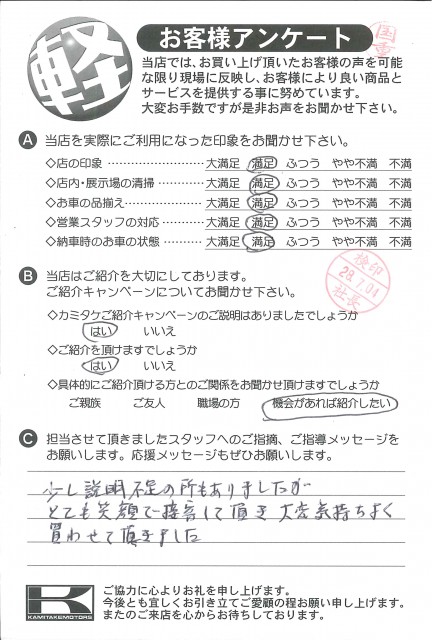 軽
お客様アンケート
国重
当店では、お買い上げ頂いたお客様の声を可能
な限り現場に反映し、お客様により良い商品と
サービスを提供する事に努めています。
大変お手数ですが是非お声をお聞かせ下さい。
A 当店を実際にご利用になった印象をお聞かせ下さい。
◇店の印象 ………………… 大満足 満足 ふつう やや不満 不満
◇店内・展示場の清掃 ………… 大満足 満足 ふつう やや不満 不満
◇お車の品揃え ……………… 大満足 満足 ふつう やや不満 不満
◇営業スタッフの対応 ………… 大満足 満足 ふつう やや不満 不満
◇納車時のお車の状態 ………… 大満足 満足 ふつう やや不満 不満
検印
28.7.04
社長
B 当店はご紹介を大切にしてあります。
ご紹介キャンペーンについてお聞かせ下さい。
◇カミタケご紹介キャンペーンのご説明はありましたでしょうか
はい いいえ
◇ご紹介を頂けますでしょうか
はい いいえ
◇具体的にご紹介頂ける方とのご関係をお聞かせ頂けますでしょうか
ご親族 ご友人 職場の方 機会があれば紹介したい
C 担当させて頂きましたスタッフへのご指摘、ご指導メッセージを
お願いします。応援メッセージもぜひお願いします。
少し説明不足の所もありましたが
とても笑顔で接客して頂き 大変気持ちよく
買わせて頂きました
K
KAMITAKEMOTORS
ご協力に心よりお礼を申し上げます。
今後とも宜しくお引き立てご愛顧の程お願い申し上げます。
またのご来店を心からお待ちしております。